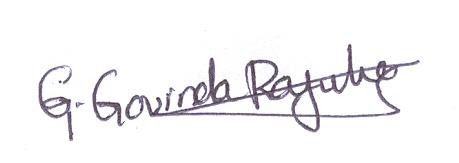 G. Govinda Rajulu